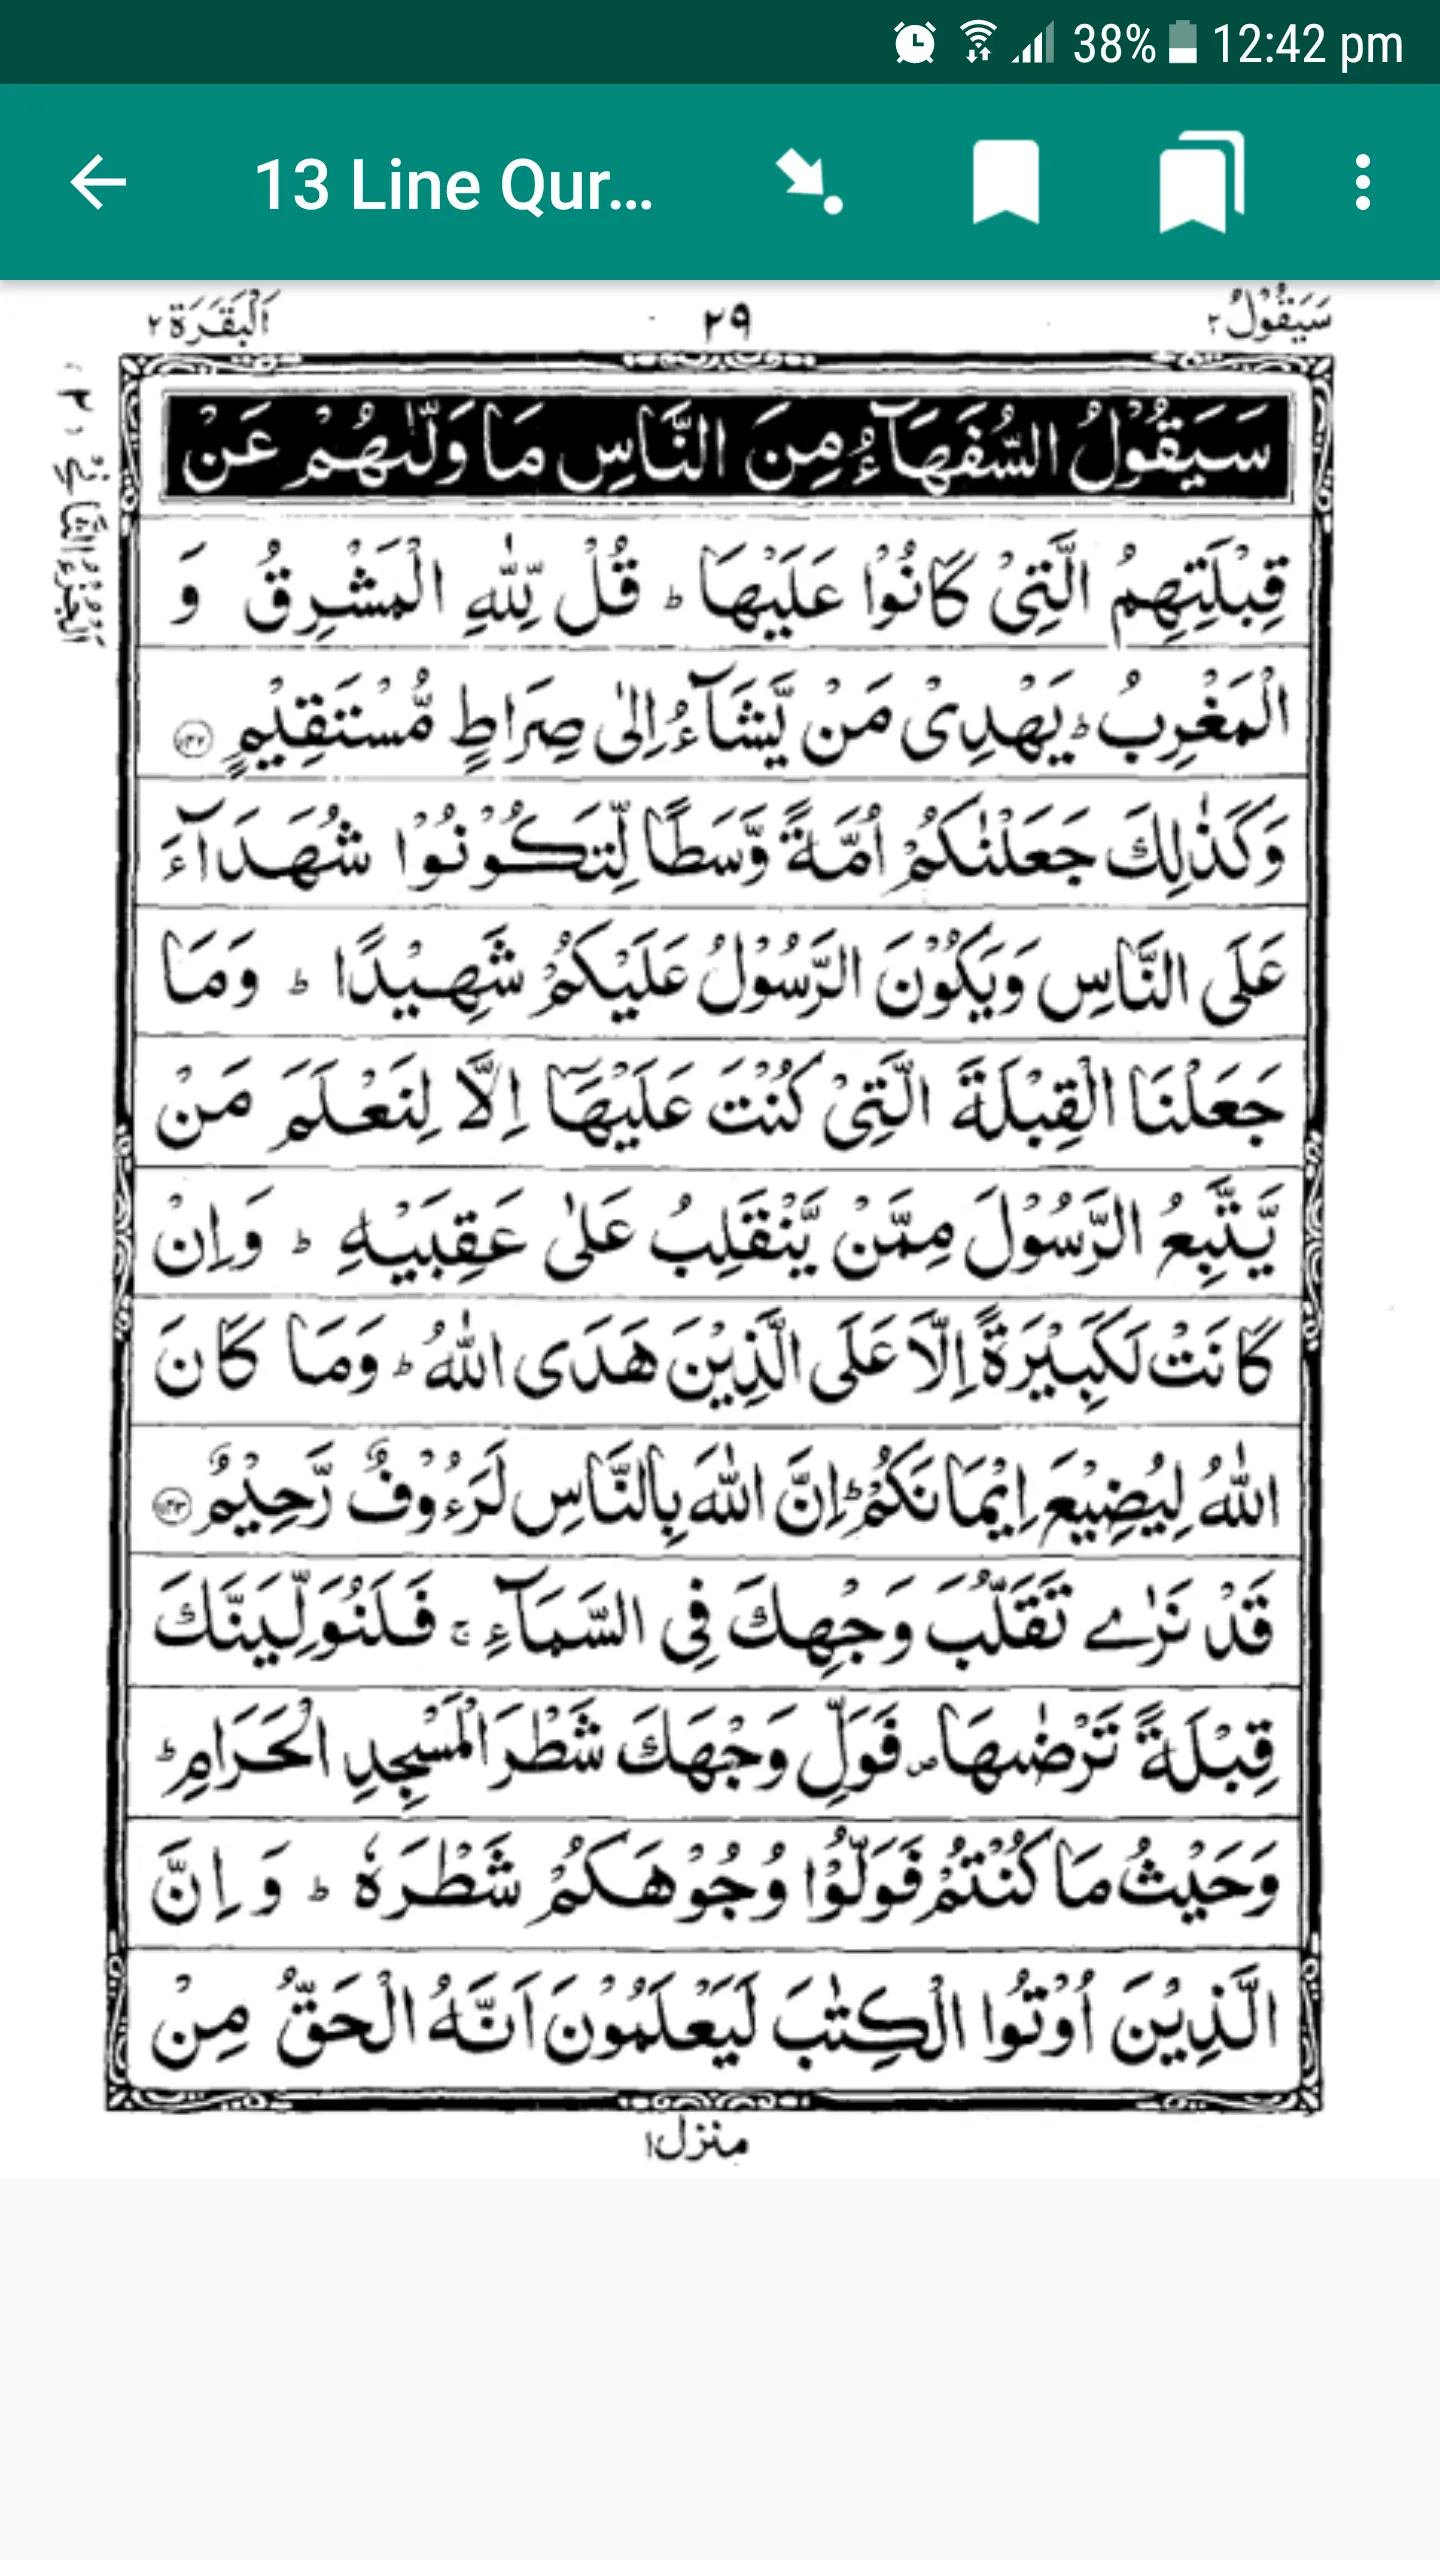 38% 12:42 pm
13 Line Qur...
سَيَقُوْلُ ٢
٢٩
اَلْبَقَرَة ٢
سَيَقُوْلُ السُّفَهَآءُ مِنَ النَّاسِ مَا وَلّٰىهُمْ عَنْ
قِبْلَتِهِمُ الَّتِىْ كَانُوْا عَلَيْهَا ؕ قُلْ لِّلّٰهِ الْمَشْرِقُ وَ
الْمَغْرِبُ ؕ يَهْدِىْ مَنْ يَّشَآءُ اِلٰى صِرَاطٍ مُّسْتَقِيْمٍ ۝١٤٢
وَكَذٰلِكَ جَعَلْنٰكُمْ اُمَّةً وَّسَطًا لِّتَكُوْنُوْا شُهَدَآءَ
عَلَى النَّاسِ وَيَكُوْنَ الرَّسُوْلُ عَلَيْكُمْ شَهِيْدًا ؕ وَمَا
جَعَلْنَا الْقِبْلَةَ الَّتِىْ كُنْتَ عَلَيْهَآ اِلَّا لِنَعْلَمَ مَنْ
يَّتَّبِعُ الرَّسُوْلَ مِمَّنْ يَّنْقَلِبُ عَلٰى عَقِبَيْهِ ؕ وَاِنْ
كَانَتْ لَكَبِيْرَةً اِلَّا عَلَى الَّذِيْنَ هَدَى اللّٰهُ ؕ وَمَا كَانَ
اللّٰهُ لِيُضِيْعَ اِيْمَانَكُمْ ؕ اِنَّ اللّٰهَ بِالنَّاسِ لَرَءُوْفٌ رَّحِيْمٌ ۝١٤٣
قَدْ نَرٰے تَقَلُّبَ وَجْهِكَ فِى السَّمَآءِ ۚ فَلَنُوَلِّيَنَّكَ
قِبْلَةً تَرْضٰىهَا ۪ فَوَلِّ وَجْهَكَ شَطْرَ الْمَسْجِدِ الْحَرَامِ ؕ
وَحَيْثُ مَا كُنْتُمْ فَوَلُّوْا وُجُوْهَكُمْ شَطْرَهٗ ؕ وَاِنَّ
الَّذِيْنَ اُوْتُوا الْكِتٰبَ لَيَعْلَمُوْنَ اَنَّهُ الْحَقُّ مِنْ
منزل ١
اَلْجُزْءُ الثَّانِيْ ٢